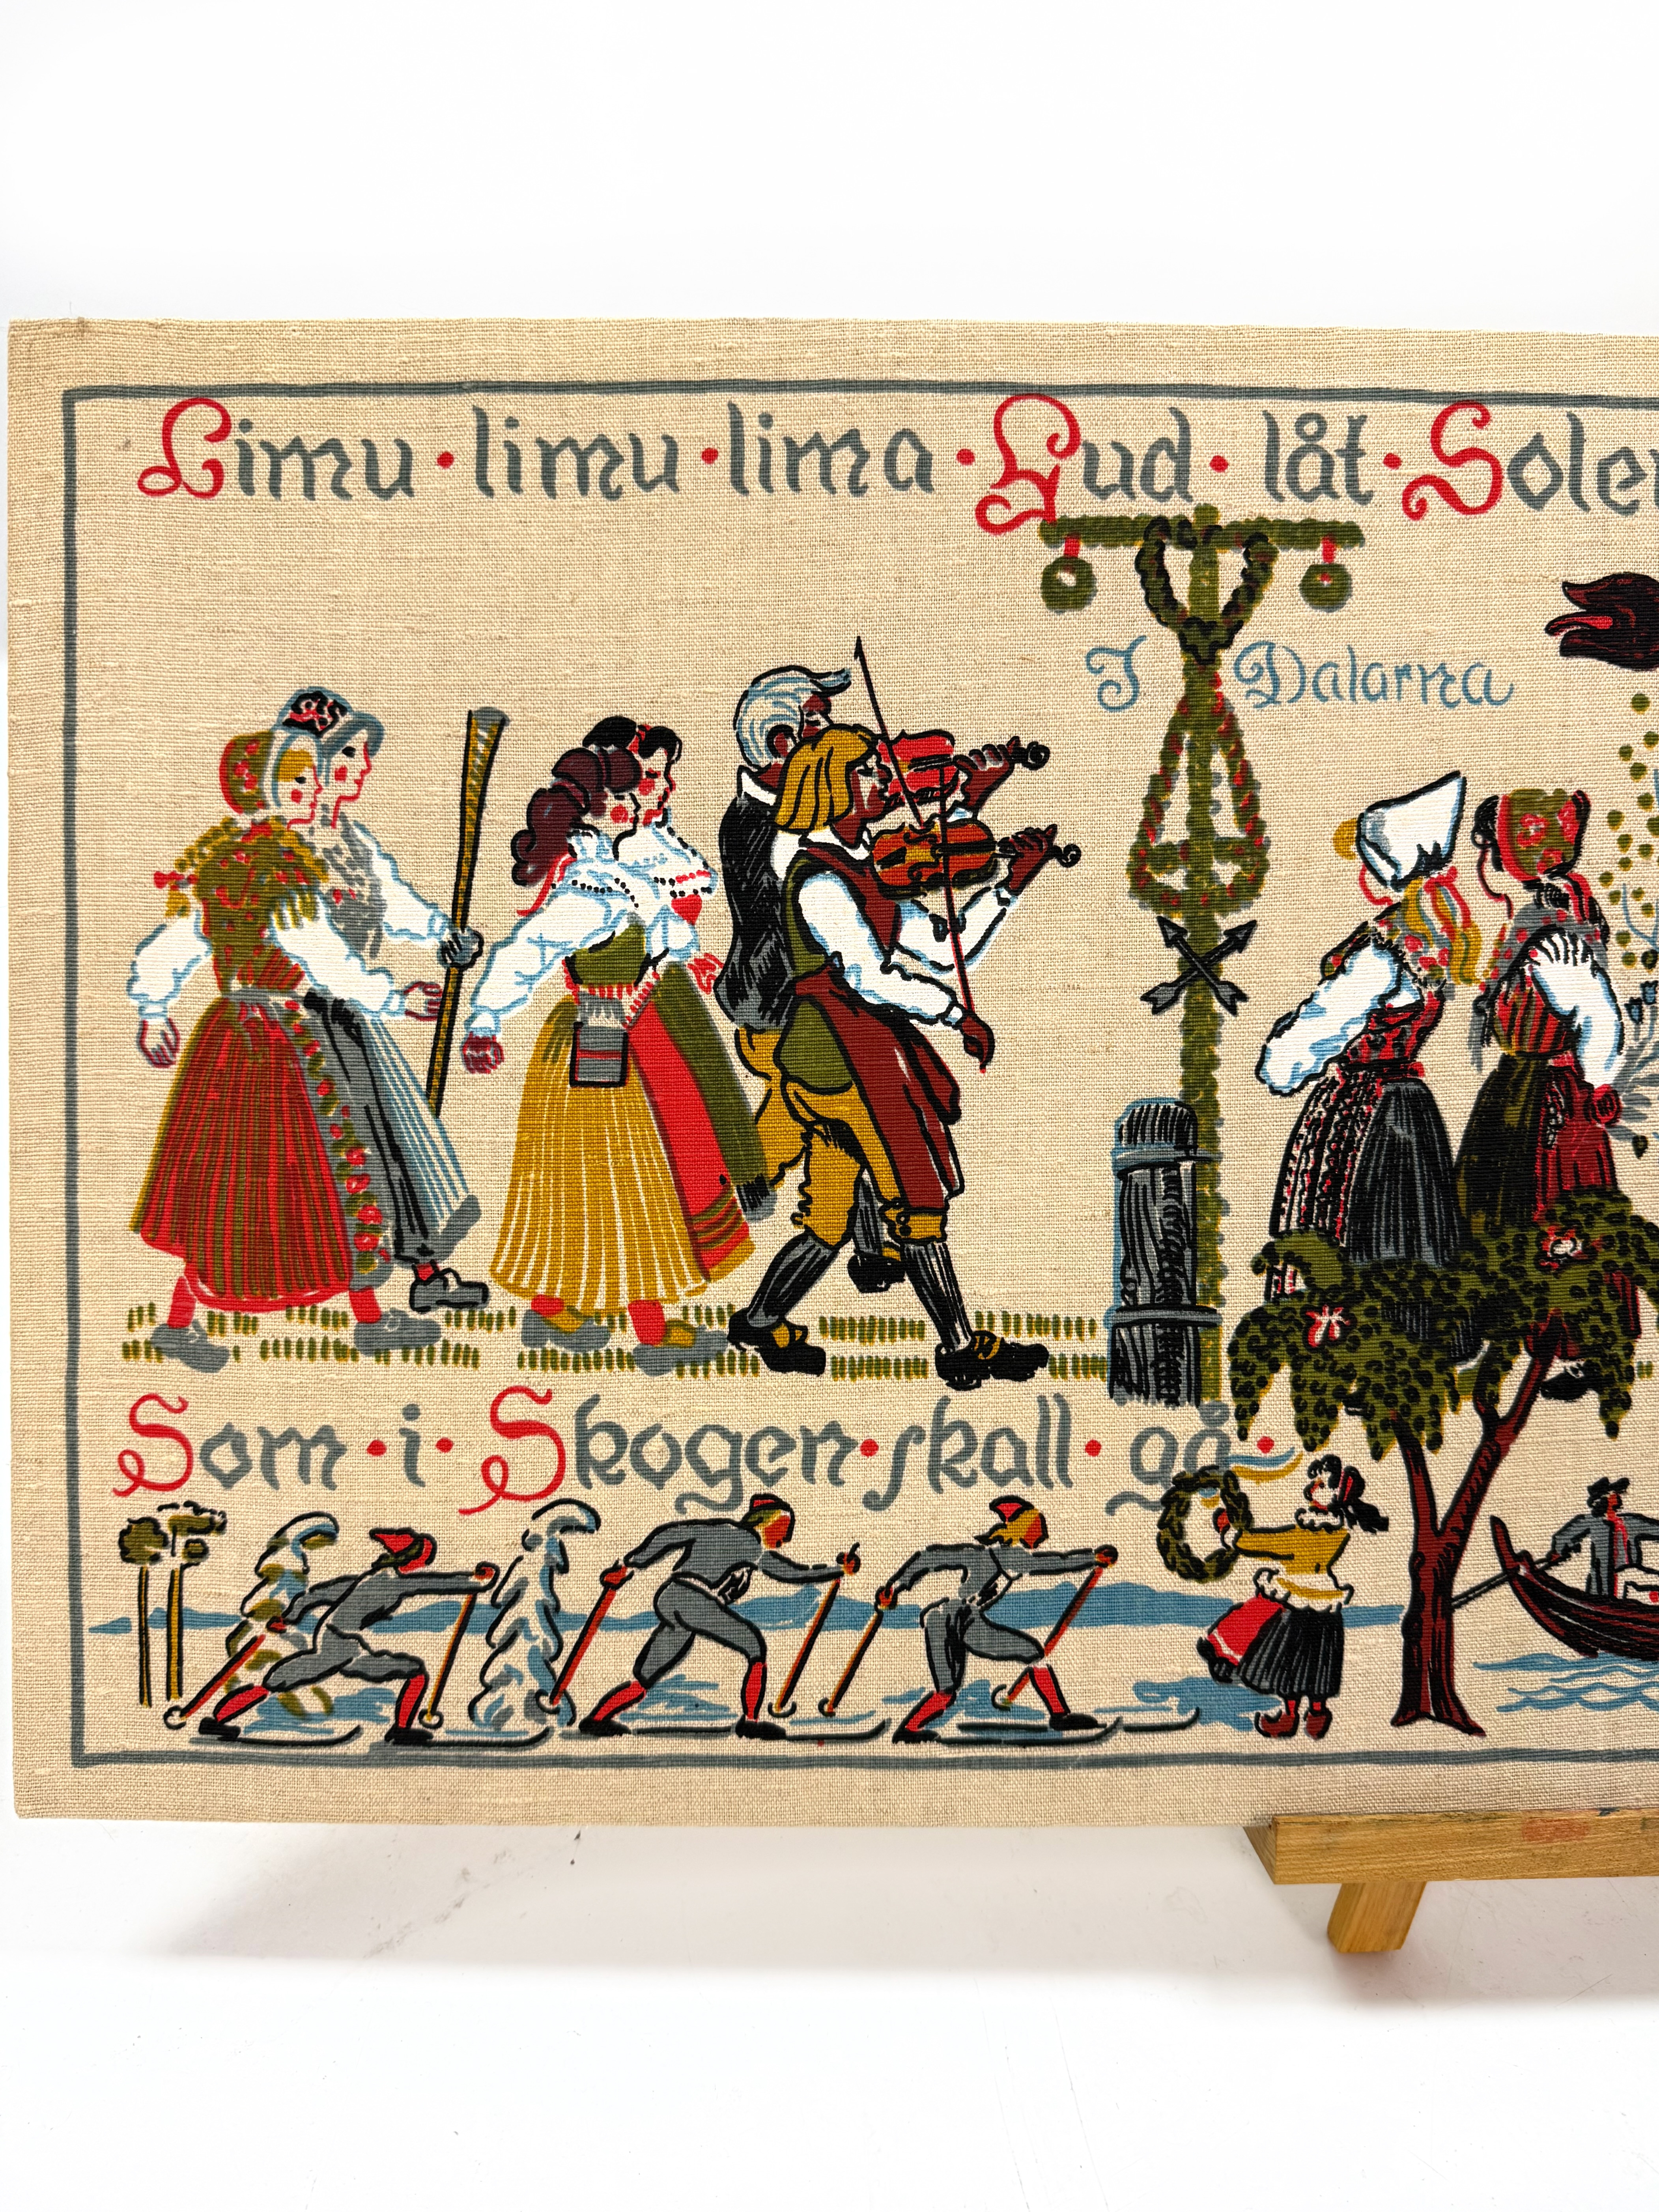 Limu · limu · lima · Gud · låt · Solen
I Dalarna
Som · i · Skogen · skall · gå ·